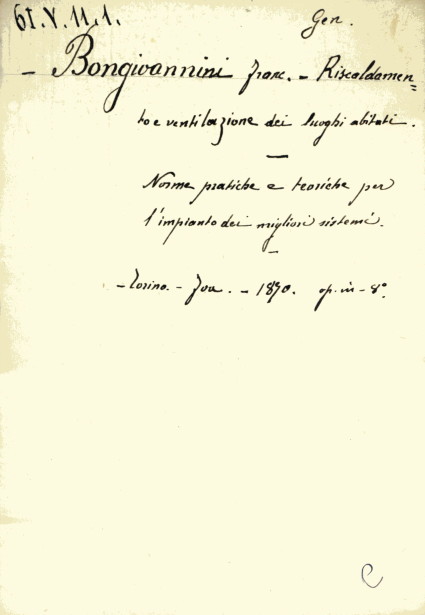 61.V.11.1.
Gen.
- Bongiovannini Franc. - Riscaldamen=
to e ventilazione dei luoghi abitati.
—
Norme pratiche e teoriche per
l'impianto dei migliori sistemi.
-
- Torino. - - 1890. op. in - 8°.
C